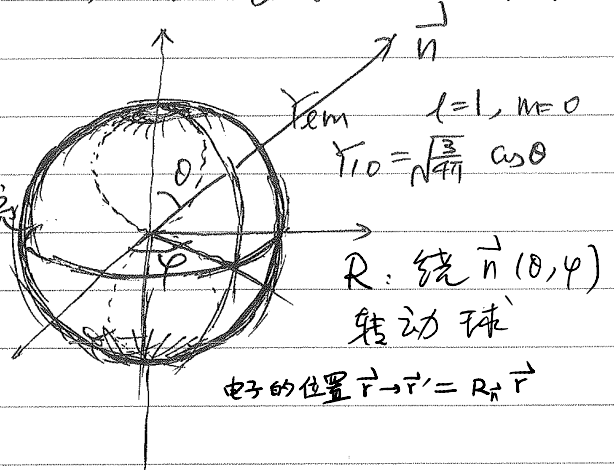 n⃗
Yℓm
l=1, m=0
Y₁₀ = √(3/4π) cosθ
θ
φ
R: 绕 n⃗ (θ,φ)
转动球
电子的位置 r⃗→r⃗'= R_n⃗ r⃗